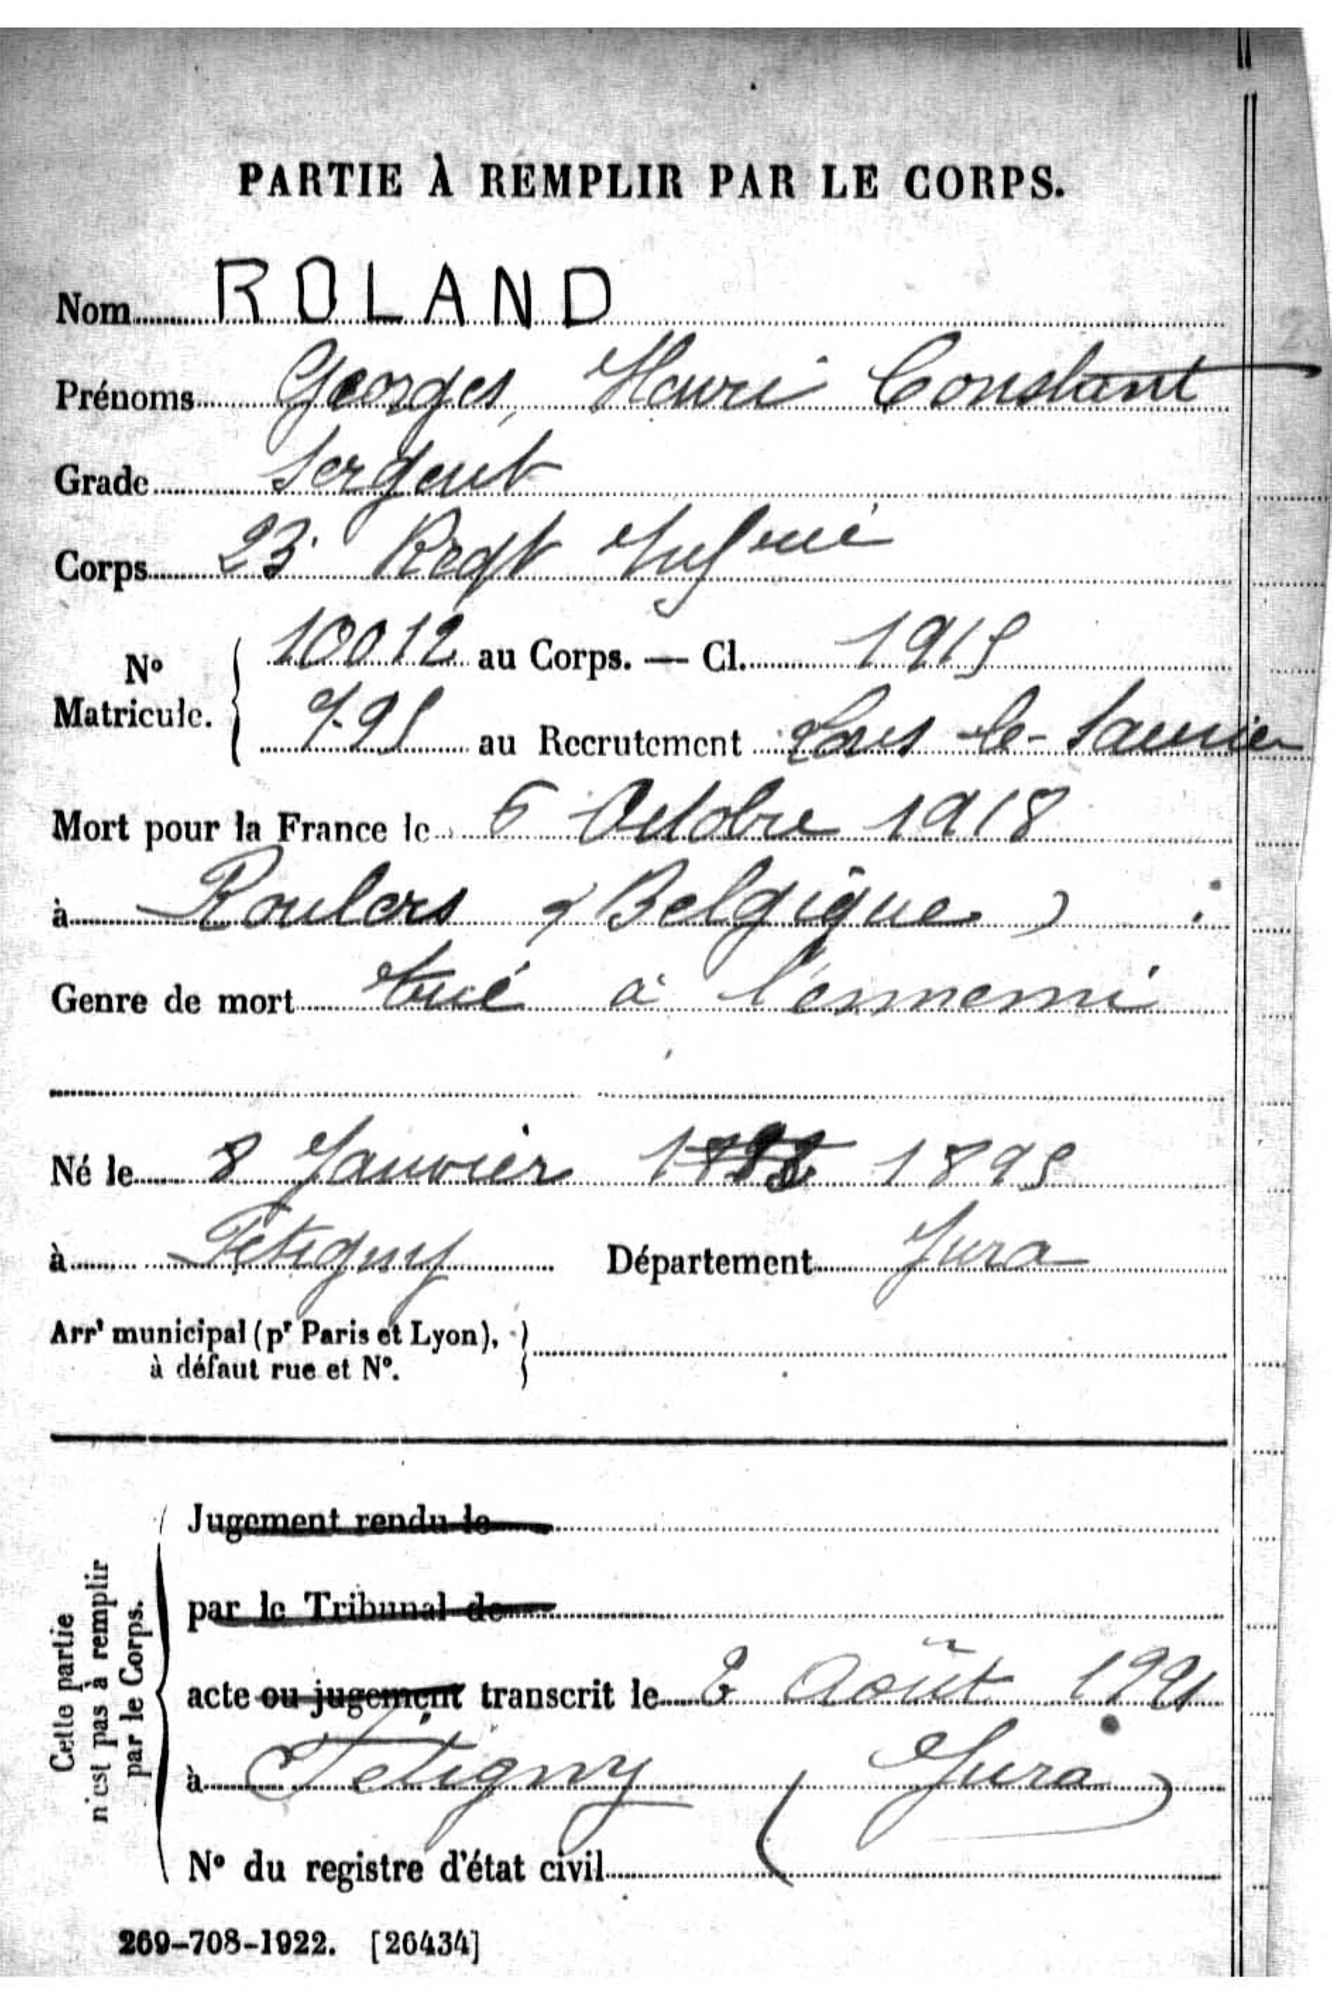 PARTIE À REMPLIR PAR LE CORPS.
Nom ROLAND
Prénoms Georges, Henri Constant
Grade Sergent
Corps 23e Regt Inf rie
N° Matricule. 10012 au Corps. — Cl. 1915
795 au Recrutement Lons-le-Saunier
Mort pour la France le 6 Octobre 1918
à Roulers (Belgique)
Genre de mort tué à l'ennemi
Né le 8 Janvier 1895
à Fetigny Département Jura
Arrt municipal (pr Paris et Lyon),
à défaut rue et N°.
Cette partie
n'est pas à remplir
par le Corps.
Jugement rendu le
par le Tribunal de
acte ou jugement transcrit le 2 Août 1921
à Fétigny (Jura)
N° du registre d'état civil
269-708-1922. [26434]